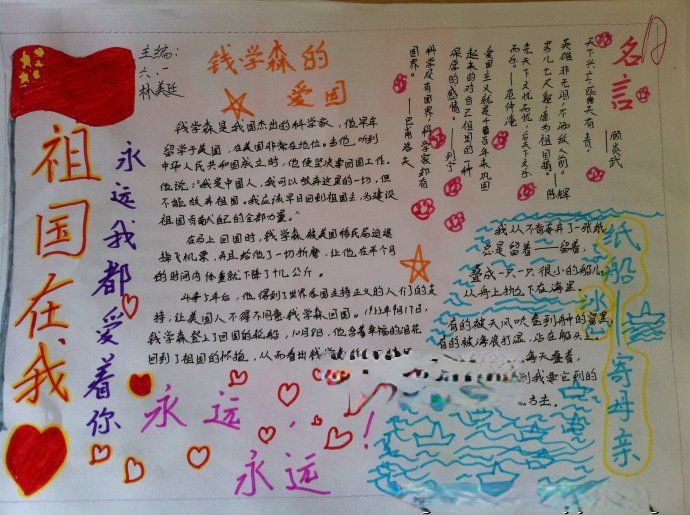 祖国在我
永远我都爱着你
主编:
六.一
林美廷
钱学森的
爱国
钱学森是我国杰出的科学家，他早年
留学于美国，在美国非常有地位。当他，听到
中华人民共和国成立时，他便坚决要回国工作。
他说："我是中国人，我可以放弃这里的一切，但
不能放弃祖国。我应该早日回到祖国去，为建设
祖国贡献自己的全部力量。"
在马上回国时，钱学森被美国移民局追退
飞机票，并且给他了一切折磨，让他在半个月
的时间内体重就下降了十几公斤。
年后，他得到了世界各国主持正义的人们的支
持，让美国人不得不同意钱学森回国。1955年9月17，
钱学森登上了回国的轮船，10月8日，他含着幸福的泪花
回到了祖国的怀抱，从而看出钱学
永远，
永远！
名言
天下兴亡，匹夫有责。——顾炎武
英雄非无泪，不洒敌人前。
男儿七尺躯，愿为祖国捐。——陈辉
先天下之忧而忧，后天下之乐
而乐。——范仲淹
爱国主义就是千百年来巩固
起来的对自己祖国的一种
深厚的感情。——列宁
科学没有国界，科学家却有
国界。——巴甫洛夫
纸船——寄母亲
冰心
我从不肯妄弃了一张纸，
总是留着——留着，
叠成一只一只很小的船儿，
从舟上抛下在海里。
有的被天风吹卷到舟中的窗里，
有的被海浪打湿，沾在船头上。
每天叠着，
到我要它到的
方去。